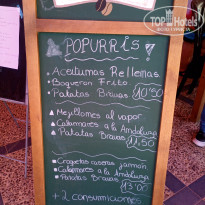 TOP Hotels
POPURRIS!
Aceitumas Rellemas
Boqueron Frito
Patatas Bravas 10'50
Mejillones al vapor
Calamares a la Andaluza
Patatas Bravas 11,50
Croquetas caseras jamón
Calamares a la Andaluza
Patatas Bravas 13'00
+ 2 consumiciones